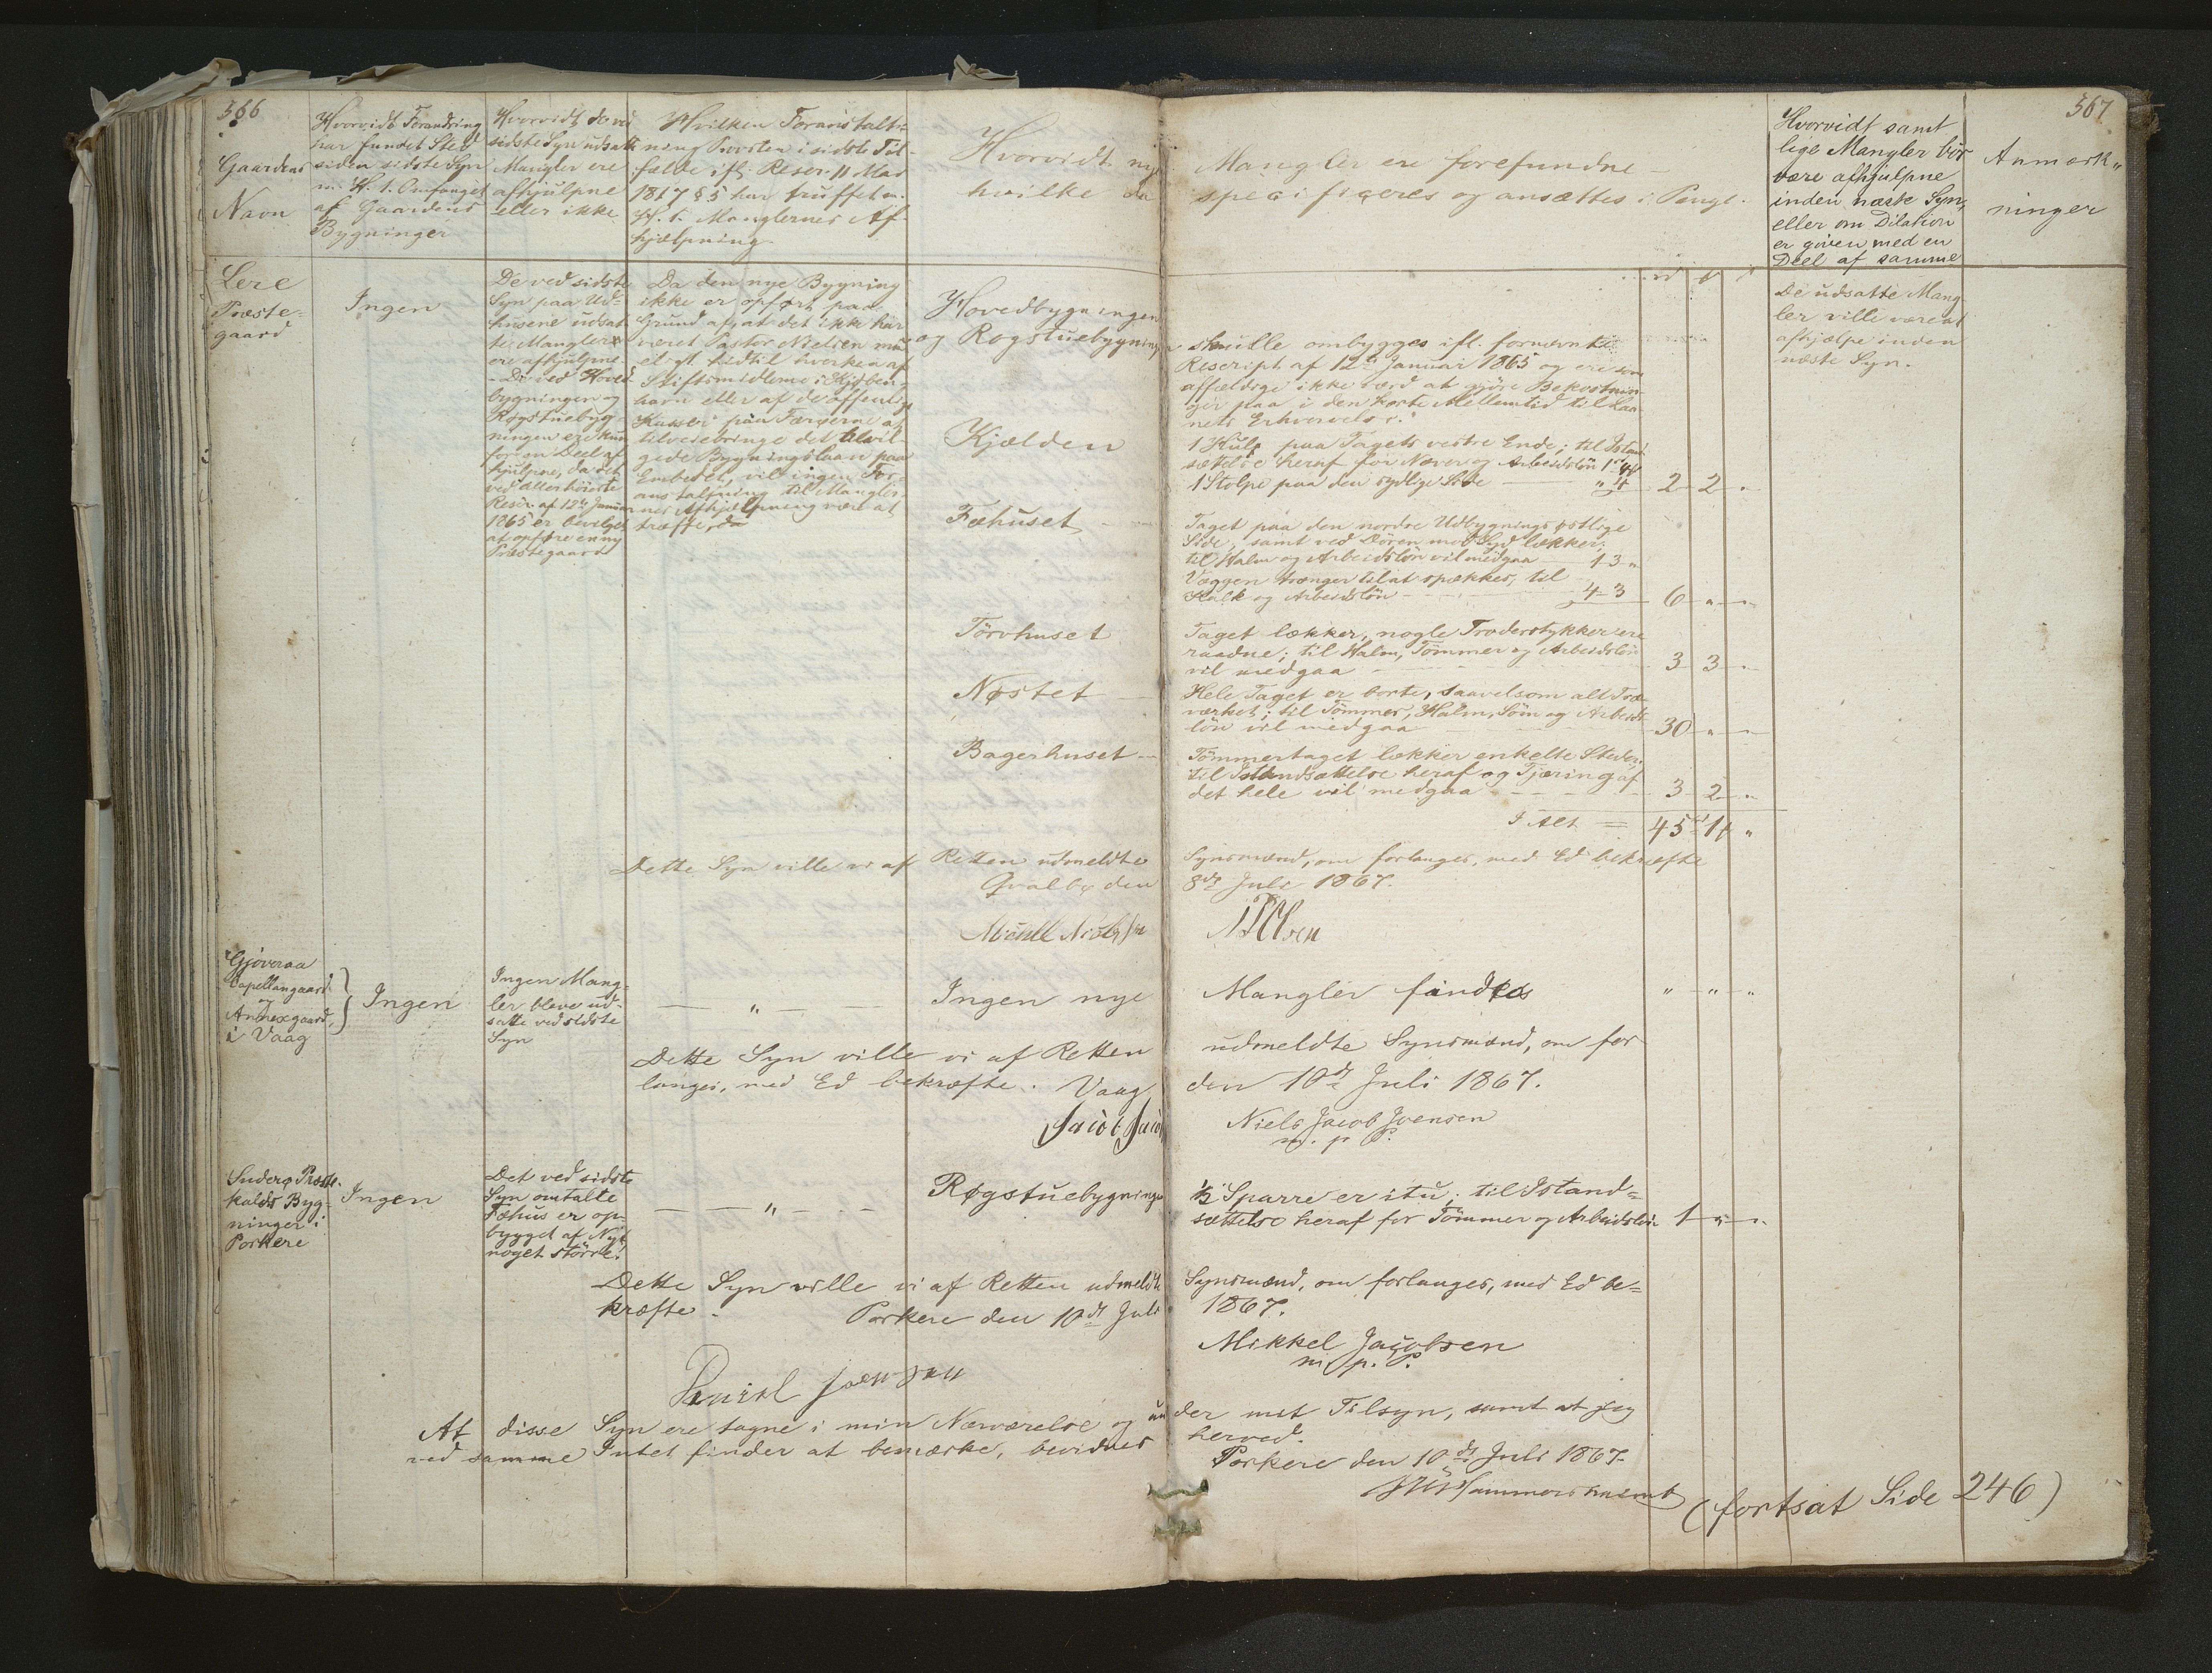 566
Gaardens
Navn
Hvorvidt Forandring
har fundet Sted
siden sidste Syn
m. H. t. Omfanget
af Gaardens
Bygninger
Hvorvidt de ved
sidste Syn udsatte
Mangler ere
afhjulpne
eller ikke
Hvilken Foranstalt-
ning Provsten i sidste Til-
fælde ifl. Rescr. 11 Mar
1817 § 5 har truffet m.
H. t. Manglernes Af-
hjælpning
Hvorvidt nye
hvilke da
Mangler ere forefundne
specificeres og ansættes i Penge.
Hvorvidt samt
lige Mangler bör
være afhjulpne
inden næste Syn,
eller om Dilation
er given med en
Deel af samme
567
Anmærk-
ninger
Præste-
gaard
Ingen
De ved sidste
Syn paa Ud-
husene udsat
te Mangler
ere afhjulpne.
- De ved Hoved-
bygningen og
Røgstuebyg-
ningen ere kun
for en Deel af-
hjulpne, da det
ved allerhöieste
Rescr. af 12te Januar
1865 er bevilget
at opføre en ny
Præstegaard
Da den nye Bygning
ikke er opført paa
Grund af, at det ikke har
været Pastor Nielsen mu-
eligt hidtil hverken af
Stiftsmidlerne i Kjöben-
havn eller af de offentlige
Kasser paa Færøerne at
tilveiebringe det tilvil-
gede Bygningslaan paa
Embedet, vil ingen For-
anstaltning til Mangler-
nes Afhjælpning være at
træffe, da
Hovedbygningen
og Røgstuebygningen
skulle ombygges ifl. fornævnte
Rescript af 12te Januar 1865 og ere som
affældige ikke værd at gjöre Bekostnin-
ger paa i den korte Mellemtid til Laa-
nets Erhvervelse.
De udsatte Mang-
ler ville være at
afhjælpe inden
næste Syn.
Kjælden
1 Hul paa Tagets vestre Ende; til Istand-
sættelse heraf for Næver og Arbeidslön
1 Stolpe paa den sydlige Side
2 2 "
Fæhuset
Taget paa den nordre Udbygnings østlige
Side, samt ved Dören mod Syd lækker;
til Halm og Arbeidslön vil medgaa 1 3 "
Væggen trænger til at spækkes, til
Kalk og Arbeidslön 4 3
6 " "
Törvhuset
Taget lækker, nogle Troderstykker ere
raadne; til Halm, Tömmer og Arbeidslön
vil medgaa
3 3 "
Nøstet
Hele Taget er borte, saavelsom alt Træ-
værket; til Tömmer, Halm, Söm og Arbeids-
lön vil medgaa
30 " "
Bagerhuset
Tömmertaget lækker enkelte Steder;
til Istandsættelse heraf og Tjæring af
det hele vil medgaa
3 2 "
I Alt = 45 1 "
Dette Syn ville vi af Retten udmeldte Synsmænd, om forlanges, med Ed bekræfte
Qvalbø den 8de Juli 1867.
Gjöveraa
Capellangaard
og
Annexgaard
i Vaag
Ingen
Ingen Mang-
ler bleve ud-
satte ved sidste
Syn
"
Ingen nye Mangler findes
" " "
Dette Syn ville vi af Retten udmeldte Synsmænd, om for
langes, med Ed bekræfte. Vaag den 10de Juli 1867.
Niels Jacob Joensen
m. p. P.
Suderø Præste-
kalds Byg-
ninger i
Porkere
Ingen
Det ved sidste
Syn omtalte
Fæhus er op-
bygget af Nyt
noget större.
"
Røgstuebygningen
1/2 Sparre er itu; til Istand-
sættelse heraf for Tömmer og Arbeidslön
1 " "
Dette Syn ville vi af Retten udmeldte Synsmænd, om forlanges, med Ed be-
kræfte. Porkere den 10de Juli 1867.
Mikkel Jacobsen
m. p. P.
At disse Syn ere tagne i min Nærværelse og under mit Tilsyn, samt at jeg
ved samme Intet finder at bemærke, bevidnes herved.
Porkere den 10de Juli 1867
(fortsat Side 246)